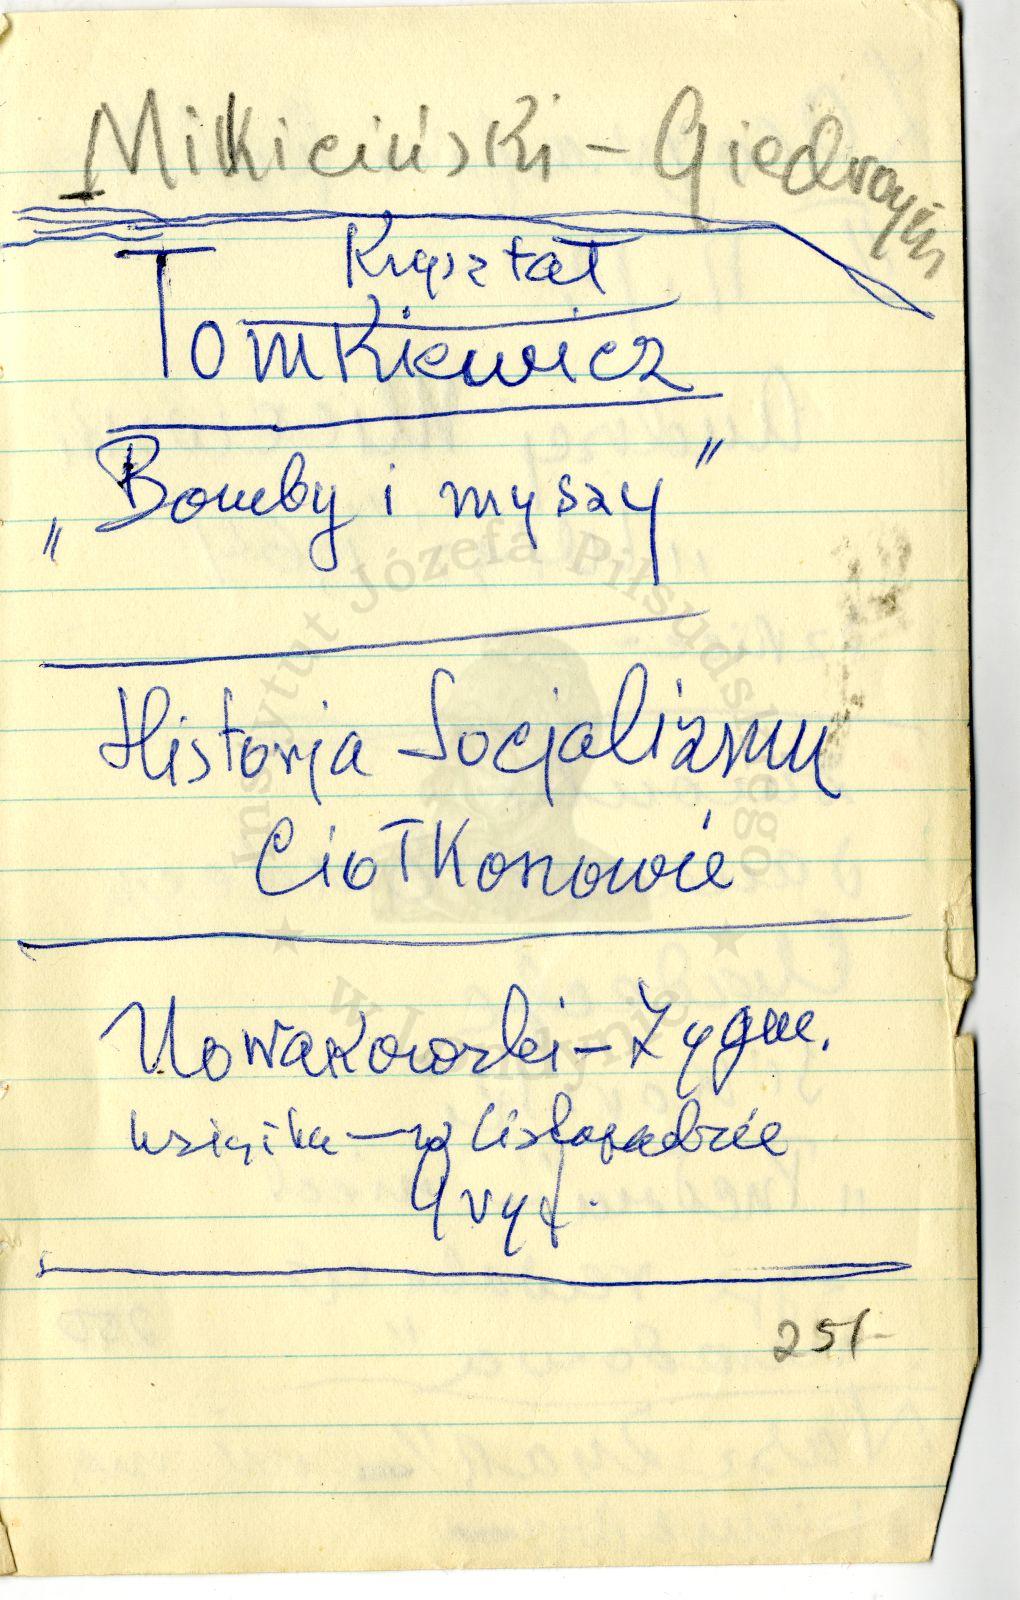 Mikiciński - Giedroyin
Kryształ
Tomkiewicz
„Bomby i myszy”
Historja Socjalizmu
Ciołkosnowie
Nowakowski - Zygm.
książka - w listopadzie
Gryf.
251
Instytut Józefa Piłsudskiego
w Londynie